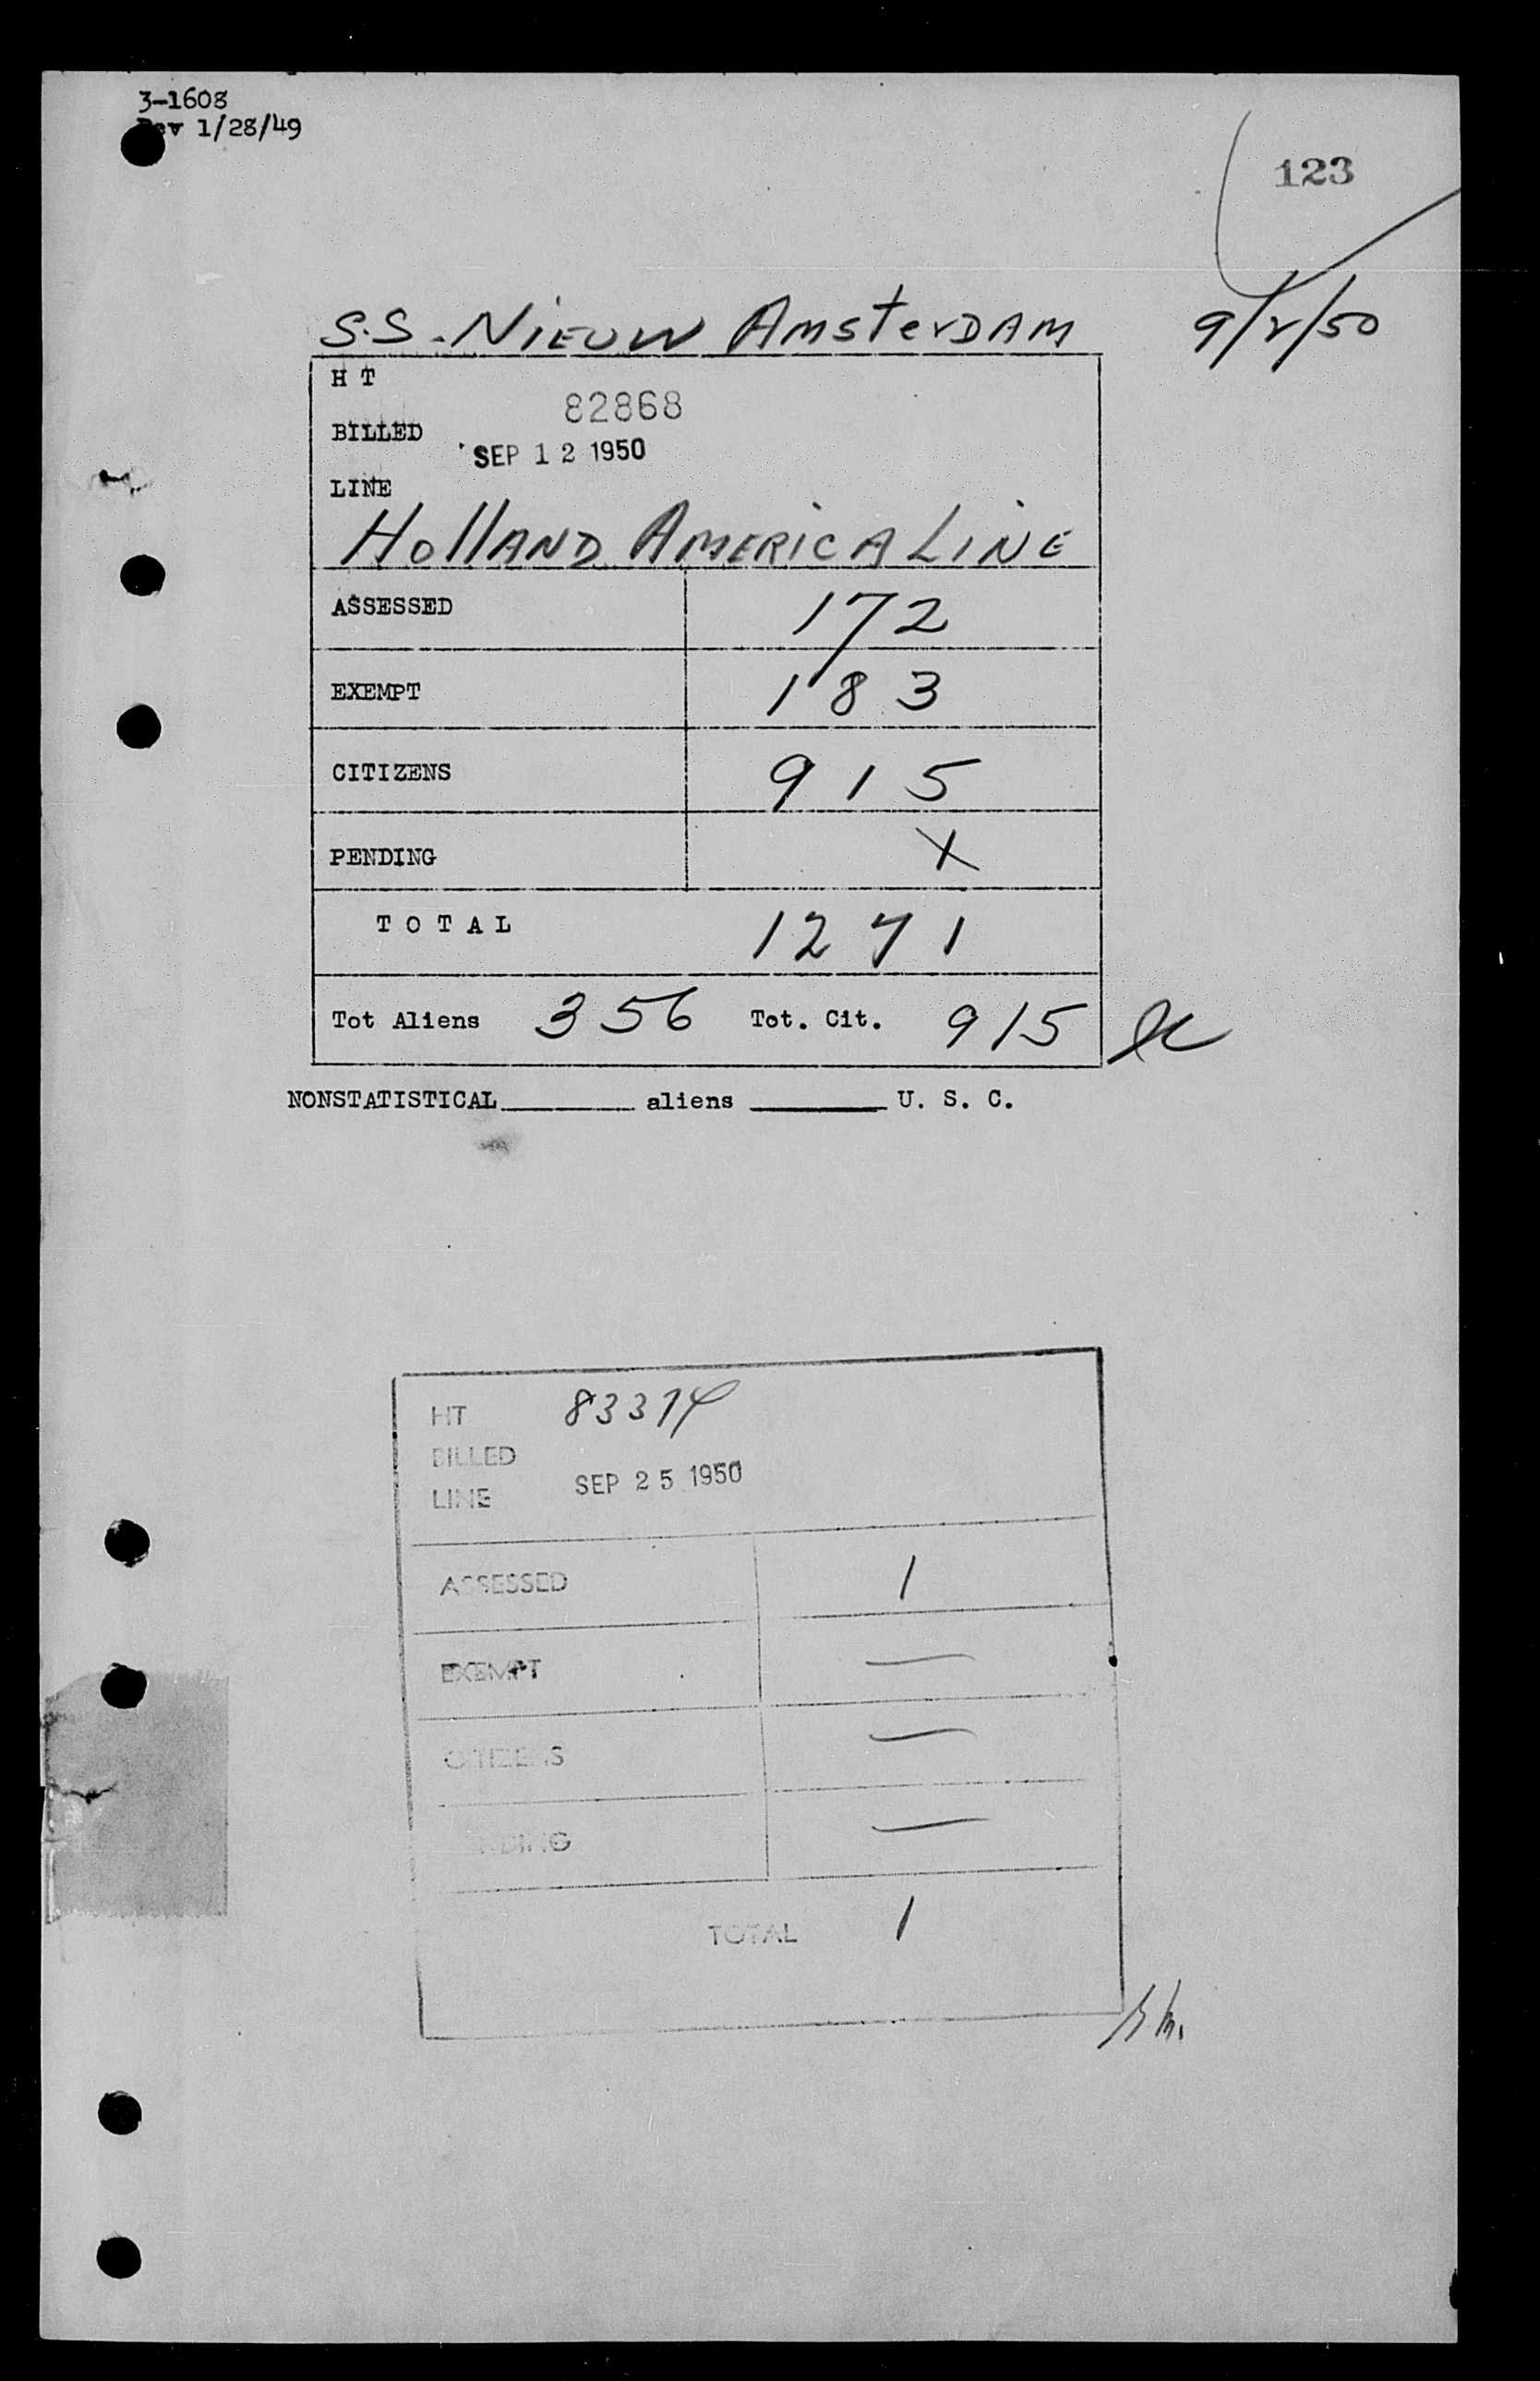 3-1608
Rev 1/28/49
123
S.S. Nieuw Amsterdam 9/2/50
H T
82868
BILLED
SEP 12 1950
LINE
Holland America Line
ASSESSED 172
EXEMPT 183
CITIZENS 915
PENDING X
TOTAL 1271
Tot Aliens 356 Tot. Cit. 915
NONSTATISTICAL aliens U. S. C.
HT 83374
BILLED
LINE SEP 25 1950
ASSESSED 1
EXEMPT —
CITIZENS —
PENDING —
TOTAL 1